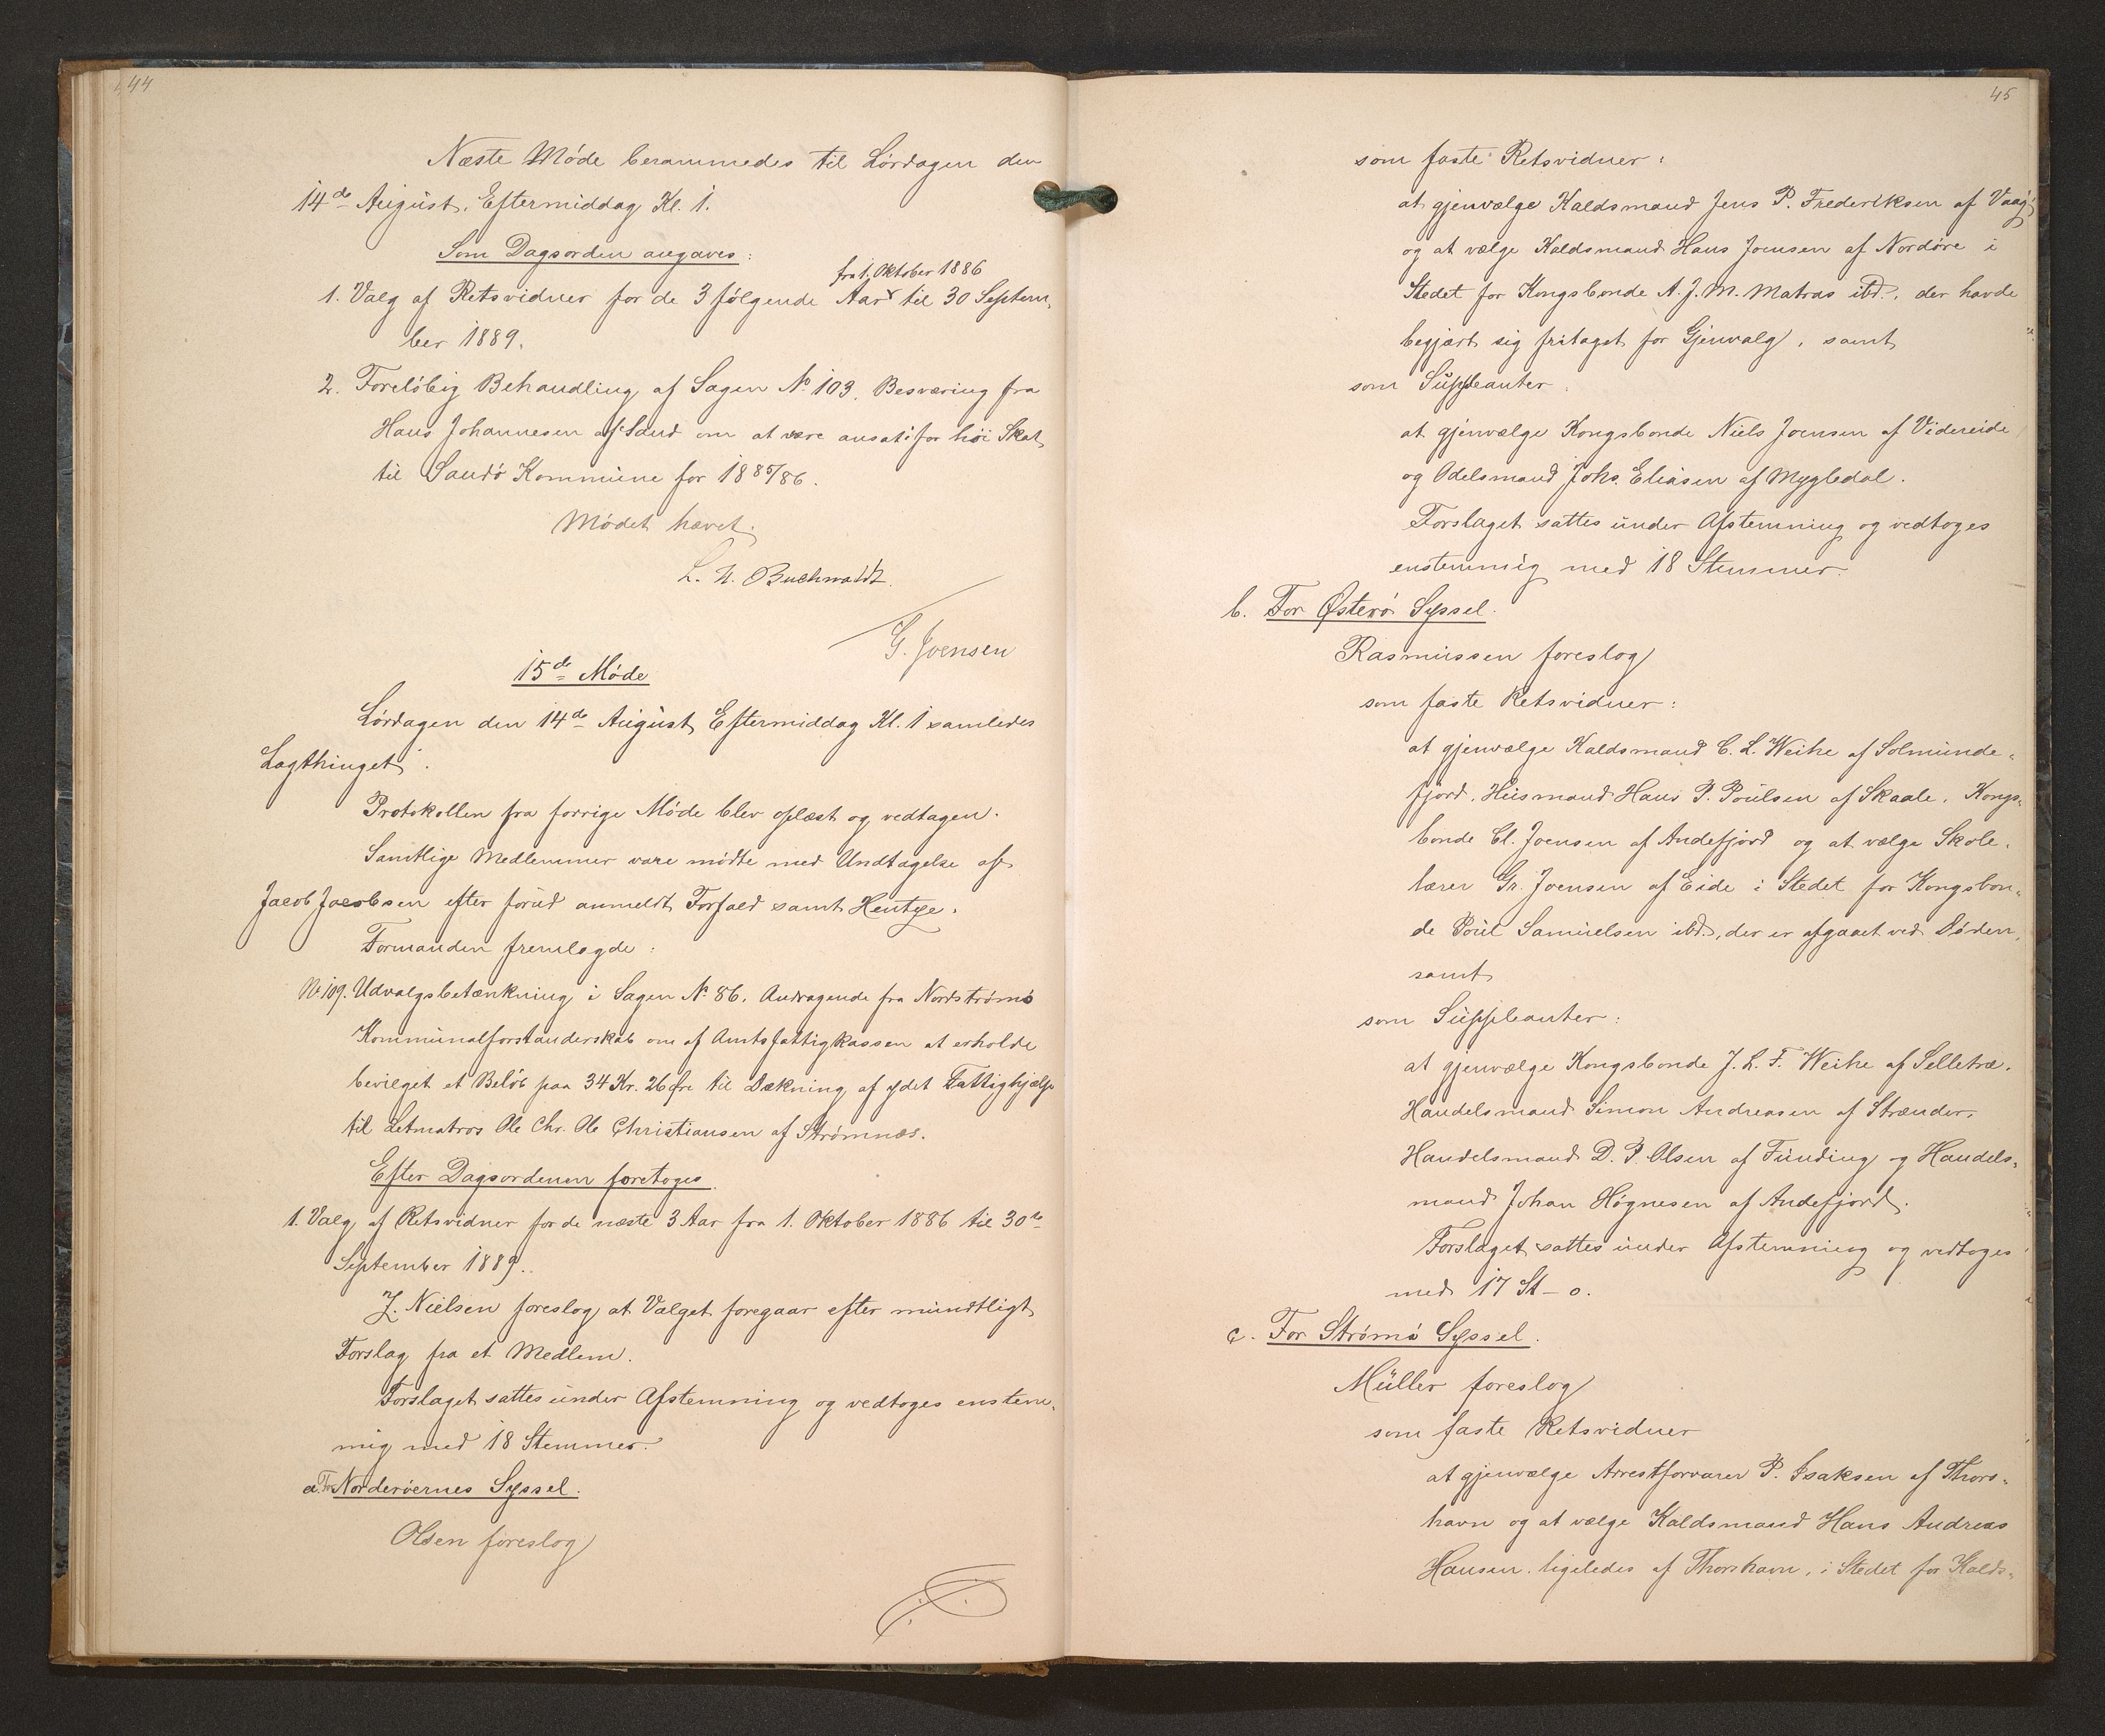 44
Næste Møde berammedes til Lørdagen den
14de August, Eftermiddag Kl. 1.
Som Dagsorden angaves:
fra 1. Oktober 1886
1. Valg af Retsvidner for de 3 følgende Aar til 30 Septem-
ber 1889.
2. Foreløbig Behandling af Sagen No 103. Besværing fra
Hans Johannesen af Sand om at være ansat for høi Skat
til Sandø Kommune for 1885/86.
Mødet hævet.
G. Joensen
15de Møde
Lørdagen den 14de August Eftermiddag Kl. 1 samledes
Lagthinget.
Protokollen fra forrige Møde blev oplæst og vedtagen.
Samtlige Medlemmer vare mødte med Undtagelse af
Jacob Jacobsen efter forud anmeldt Forfald samt Hentze.
Formanden fremlagde:
No 109. Udvalgsbetænkning i Sagen No 86. Andragende fra Nordstrømø
Kommunalforstanderskab om af Amtsfattigkassen at erholde
bevilget et Beløb paa 34 Kr. 26 Øre til Dækning af ydet Fattighjælp
til Letmatros Ole Chr. Ole Christiansen af Strømnæs.
Efter Dagsordenen foretoges
1. Valg af Retsvidner for de næste 3 Aar fra 1. Oktober 1886 til 30te
September 1889.
Z. Nielsen foreslog at Valget foregaar efter mundtligt
Forslag fra et Medlem.
Forslaget sattes under Afstemning og vedtoges enstem-
mig med 18 Stemmer.
a. For Norderøernes Syssel.
Olsen foreslog
45
som faste Retsvidner:
at gjenvælge Kaldsmand Jens P. Frederiksen af Vaag
og at vælge Kaldsmand Hans Joensen af Nordøre i
Stedet for Kongsbonde A. J. M. Matras ibd., der havde
begjært sig fritaget for Gjenvalg, samt
som Suppleanter:
at gjenvælge Kongsbonde Niels Joensen af Videreide
og Odelsmand Johs. Eliasen af Mygledal.
Forslaget sattes under Afstemning og vedtoges
enstemmig med 18 Stemmer.
b. For Østerø Syssel.
Rasmussen foreslog
som faste Retsvidner:
at gjenvælge Kaldsmand C. L. Weihe af Solmunde-
fjord, Husmand Hans P. Poulsen af Skaale, Kongs-
bonde Cl. Joensen af Andefjord og at vælge Skole-
lærer Gr. Joensen af Eide i Stedet for Kongsbon-
de Poul Samuelsen ibd., der er afgaaet ved Døden,
samt
som Suppleanter:
at gjenvælge Kongsbonde J. L. F. Weihe af Selletræ,
Handelsmand Simon Andreasen af Strænder,
Handelsmand D. P. Olsen af Funding og Handels-
mand Johan Høgnesen af Andefjord.
Forslaget sattes under Afstemning og vedtoges
med 17 St - 0.
c. For Strømø Syssel.
Müller foreslog
som faste Retsvidner
at gjenvælge Arrestforvarer P. Isaksen af Thors-
havn og at vælge Kaldsmand Hans Andreas
Hansen, ligeledes af Thorshavn, i Stedet for Kalds-